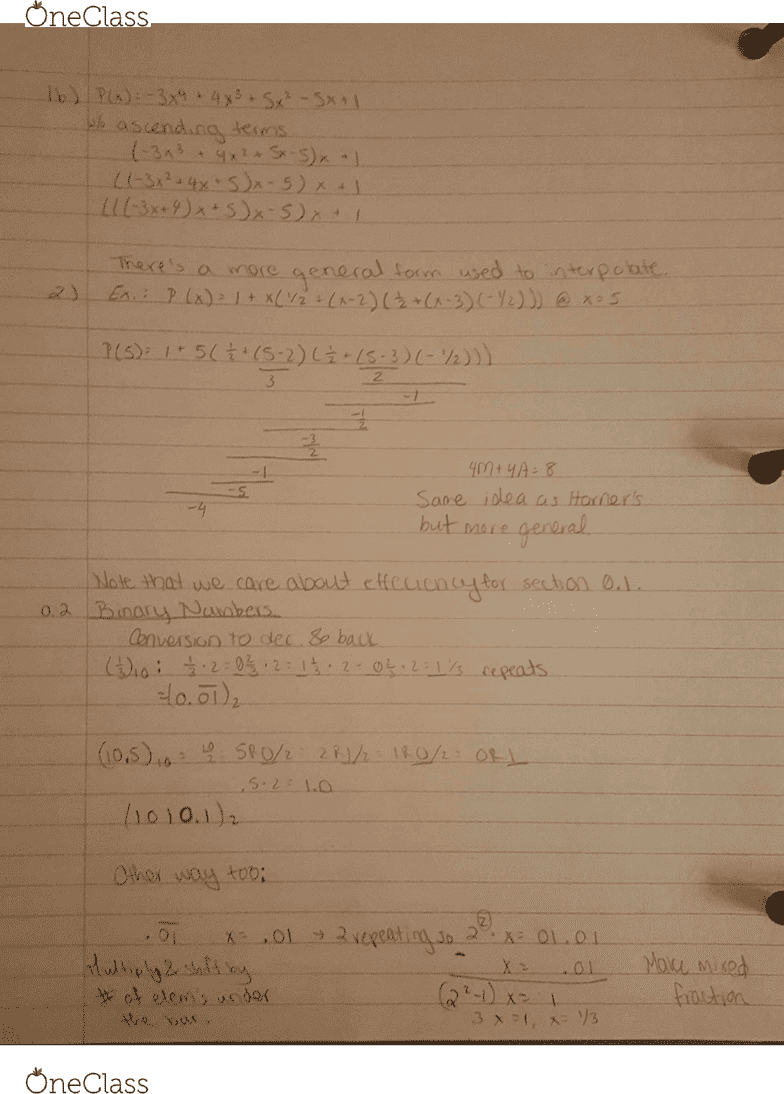 OneClass
1b) P(x) = -3x⁴ + 4x³ + 5x² - 5x + 1
ascending terms
(-3x³ + 4x² + 5x - 5)x + 1
((-3x² + 4x + 5)x - 5) x + 1
(((-3x+4)x + 5)x - 5)x + 1
There's a more general form used to interpolate.
2) Ex.: P(x) = 1 + x(1/2 + (x-2)(1/2 + (x-3)(-1/2))) @ x=5
P(5) = 1 + 5(1/2 + (5-2)(1/2 + (5-3)(-1/2)))
3 2
-1
-1/2
-3/2
-1
-5
-4
4M + 4A = 8
Same idea as Horner's
but more general
Note that we care about efficiency for section 0.1.
0.2 Binary Numbers
Conversion to dec. & back
(1/3)₁₀ : 1/3 · 2 = 0 2/3 · 2 = 1 1/3 · 2 = 0 2/3 · 2 = 1 1/3 repeats
= (0.0̅1̅)₂
(10.5)₁₀ = 10/2 = 5R0/2 = 2R1/2 = 1R0/2 = 0R1
.5 · 2 = 1.0
(1010.1)₂
Other way too:
.0̅1̅ x = .01 → 2 repeating so 2² · x = 01.01
- x = .01
Multiply & shift by
# of elem's under
the bar.
(2²-1) x = 1
3x = 1, x = 1/3
Make mixed
fraction
OneClass